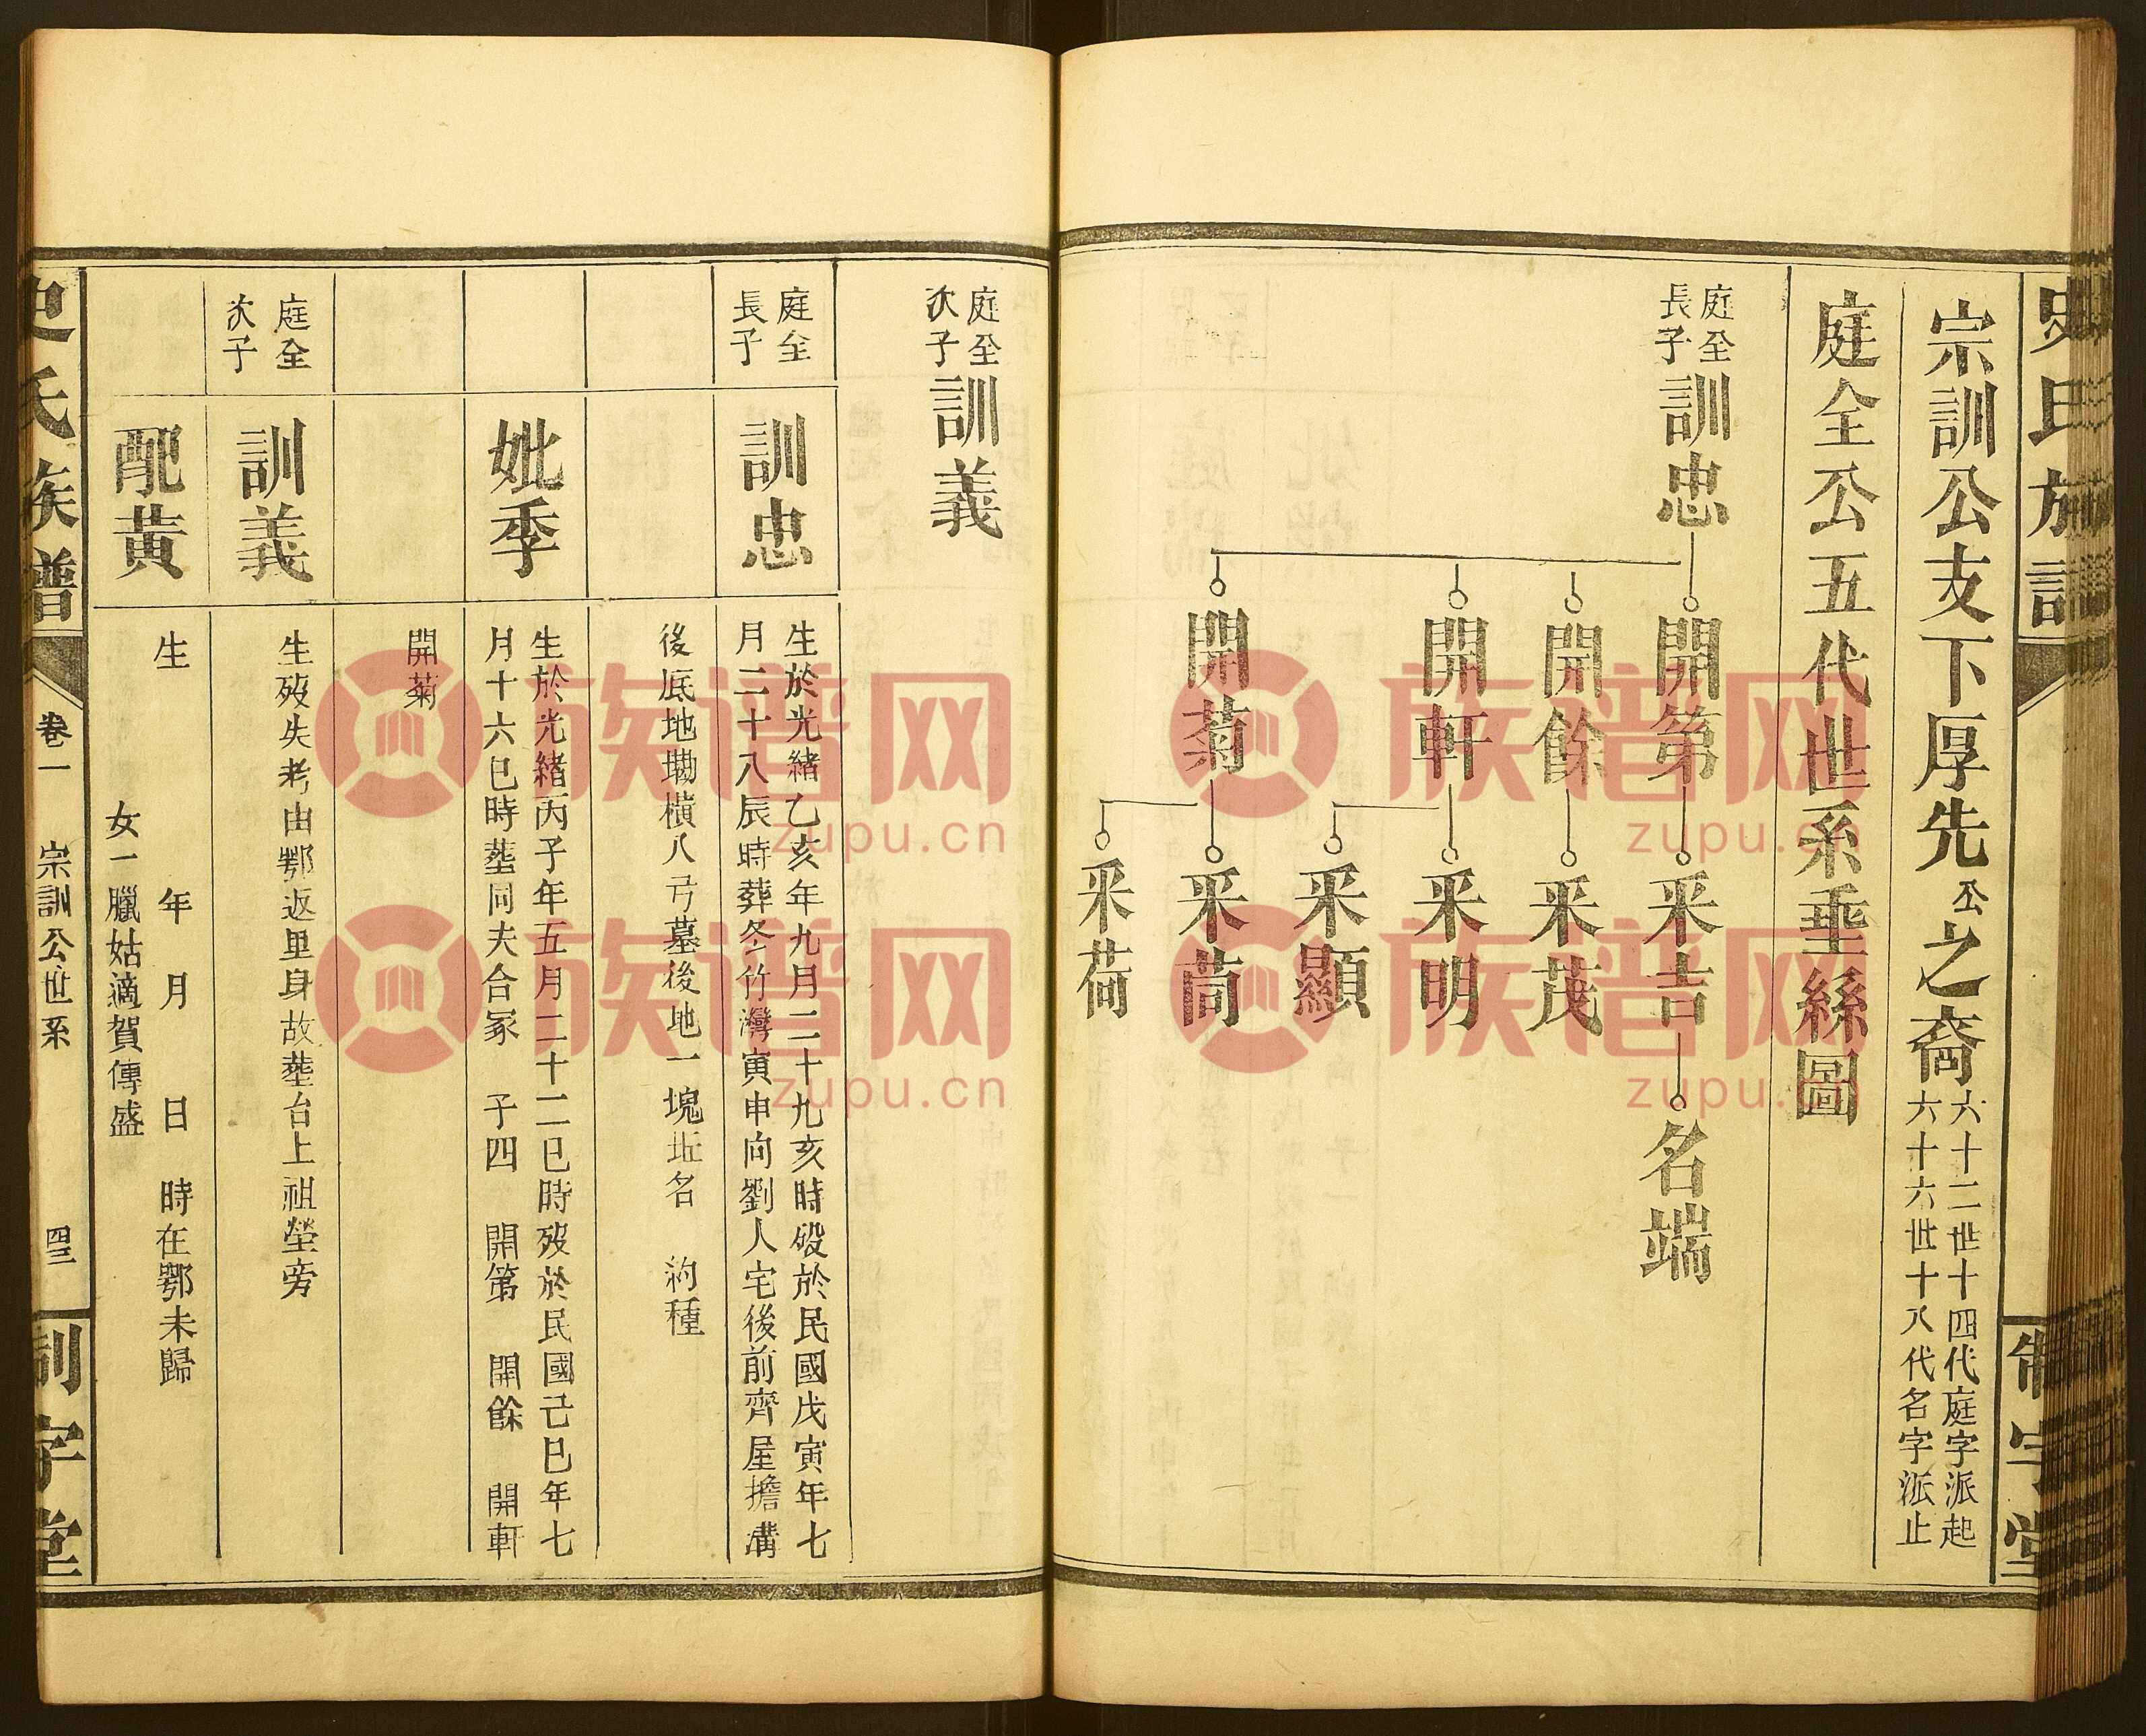 史氏族譜
制字堂
宗訓公支下厚先公之裔
六十二世十四代庭字派起
六十六世十八代名字派止
庭全公五代世系垂絲圖
庭全
長子
訓忠
開第
開餘
開軒
開菊
采吉
采茂
采明
采顯
采茼
采荷
名端
庭全
次子
訓義
庭全
長子
訓忠
生於光緒乙亥年九月二十九亥時殁於民國戊寅年七
月二十八辰時葬冬竹灣寅申向劉人宅後前齊屋擔溝
後底地塝橫八弓墓後地一塊坵名 約種
妣季
生於光緒丙子年五月二十二巳時殁於民國己巳年七
月十六巳時塟同夫合冢 子四 開第 開餘 開軒
開菊
庭全
次子
訓義
生殁失考由鄂返里身故塟台上祖塋旁
配黃
生 年 月 日 時在鄂未歸
女一臘姑適賀傳盛
史氏族譜
卷一 宗訓公世系 四三
制字堂
族谱网
zupu.cn
族谱网
zupu.cn
族谱网
zupu.cn
族谱网
zupu.cn